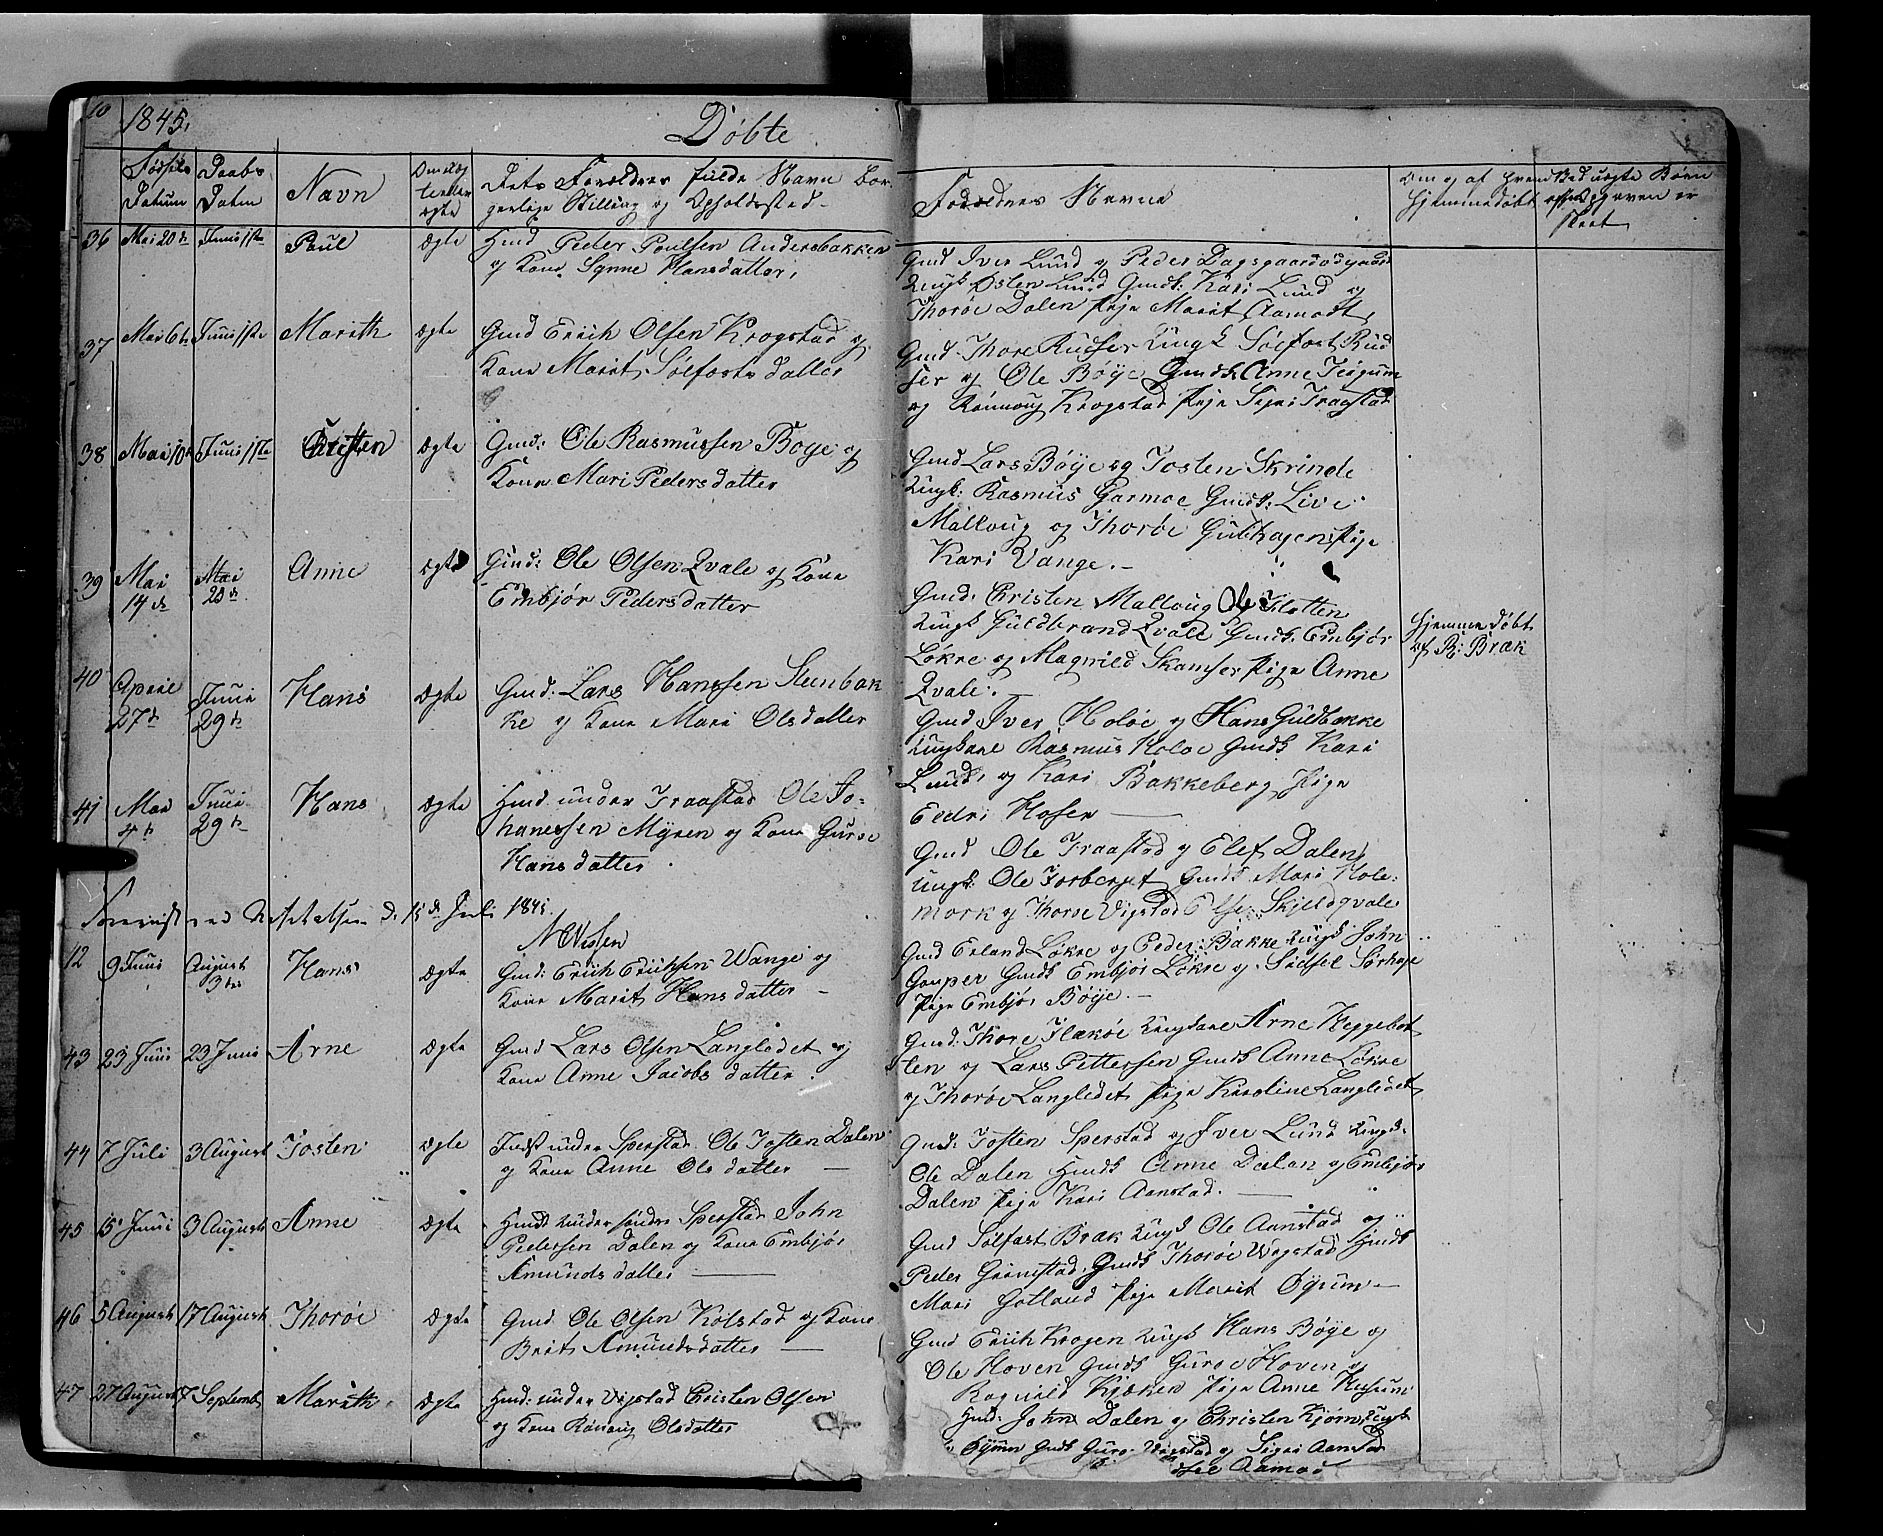 10 1845. Døbte
Fødsels Datum
Daabs Datum
Navn
Om Æg te eller uægte
Dets Forældres fulde Navn bor gerlige Stilling og Opholdssted
Faddernes Navne
Om og af hvem Hjemmedøbt
Ved uægte Børn
36 Mai 20de Junii 1ste Paul ægte Hmd Peder Poulsen Andersbakken
og Kone Synne Hansdatter,
Gmd Iver Lund og Peder Dagsgaardødegaard
Ungk Østen Lund Gmdk: Kari Lund og
Thorøe Dalen Pige Marit Aamodt
37 Mai 6te Junii 1ste Marith ægte Gmd Erich Olsen Krogstad og
Kone Marit Sølfæstsdatter
Gmd. Thore Rudser Ungk Sølfæst Rud
ser og Ole Bøye Gmdk Anne Teigum
og Rønnoug Krogstad Pige Signi Fraastad
38 Mai 10de Junii 1ste Kristen ægte Gmd: Ole Rasmussen Bøye og
Kone Mari Pedersdatter
Gmd Lars Bøye og Josten Skrinde
Ungk: Rasmus Garmoe Gmdk: Live
Mølloug og Thorøe Gulhagen Pige
Kari Vange. —
39 Mai 14de Mai 20de Anne ægte Gmd: Ole Olsen Qvale og Kone
Embjør Pedersdatter
Gmd: Christen Mølloug Ole Flotten
Ungk Guldbrand Qvale Gmdk: Embjør
Løkre og Magnild Skamser Pige Anne
Qvale. —
Hjemmedøbt
af R: Bræk
40 April 27de Junii 29de Hans ægte Gmd: Lars Hanssen Steenbak
ke og Kone Mari Olsdatter
Gmd Iver Holøe og Hans Guldbakke
Ungkarl Rasmus Holøe Gmdk Kari
Lund, og Kari Bakkeberg Pige
Eldri Hosen —
41 Mai 4de Junii 29de Hans ægte Hmd. under Fraastad Ole Jo-
hanessen Myren og Kone Guroe
Hansdatter
Gmd Ole Fraastad og Elef Dalen
Ungk: Ole Forberget Gmdk Mari Hole-
mork og Thorøe Vigstad Pige Skjeldqvale
d. 15de Juli 1845.
42 9 Junii August 3die Hans ægte Gmd: Erich Erichsen Wange og
Kone Marit Hansdatter —
Gmd Erland Løkre og Peder Bakke Ungk John
Gauper Gmdk Embjør Løkre og Sidsel Sørhage
Pige Embjør Bøye. —
43 23 Junii 23 Junii Arne ægte Gmd Lars Olsen Langledet og
Kone Anne Jacobsdatter
Gmd: Thore Flækøe Ungkarl Arne Heggebot
ten og Lars Pettersen Gmdk Anne Løkre
og Thorøe Langledet Pige Karoline Langledet
44 7 Juli 3 August Josten ægte Indst under Sperstad Ole Josten Dalen
og Kone Anne Olsdatter —
Gmd: Josten Sperstad og Iver Lund Ungk:
Ole Dalen Hmdk Anne Dalen og Embjør
Dalen Pige Kari Aanstad. —
45 15 Junii 3 August Anne ægte Hmd under søndre Sperstad John
Pedersen Dalen og Kone Embjør
Amundsdatter —
Gmd Sølfæst Bræk Ungk Ole Aanstad og
Peder Grønstad. Gmdk Thorøe Wigstad Hmdk
Mari Gotland Pige Marit Øyum —
46 5 August 17 August Thorøe ægte Gmd Ole Olsen Kolstad og Kone
Brit Amundsdatter —
Gmd Erich Krogen Ungk Hans Bøye og
Ole Hoven Gmdk Guroe Hoven og
Ragnild Kjøken Pige Anne Husum
47 27 August 7 Septemb Marith ægte Hmd: under Vigstad Cristen Olsen
og Kone Rønnoug Olsdatter
Hmd: John Dalen og Christen Kjørn Ungk
Øyum Gmdk Guro Vigstad og Signi Aanstad
Aamod